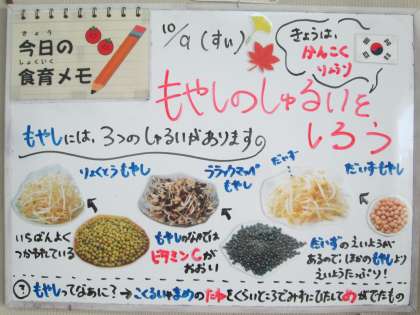 きょう
今日の
しょくいく
食育メモ
10/9(すい)
きょうは、
かんこく
りょうり
もやしのしゅるいを
しろう
もやしには、3つのしゅるいがあります。
りょくとうもやし
ブラックマッペ
もやし
だいず
だいずもやし
いちばんよく
つかわれている
もやしのなかでは
ビタミンCが
おおい
だいずのえいようが
あるので、ほかのもやしより
えいようたっぷり!
? もやしってなあに? → こくるいやまめのたねをくらいところでみずにひたしてめがでたもの